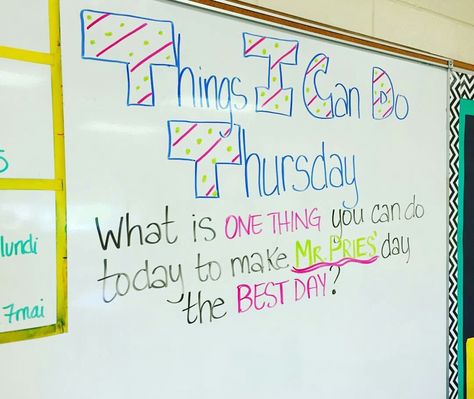 Things I Can Do
Thursday
What is ONE THING you can do
today to make MR. PRIES' day
the BEST DAY?
lundi
7 mai